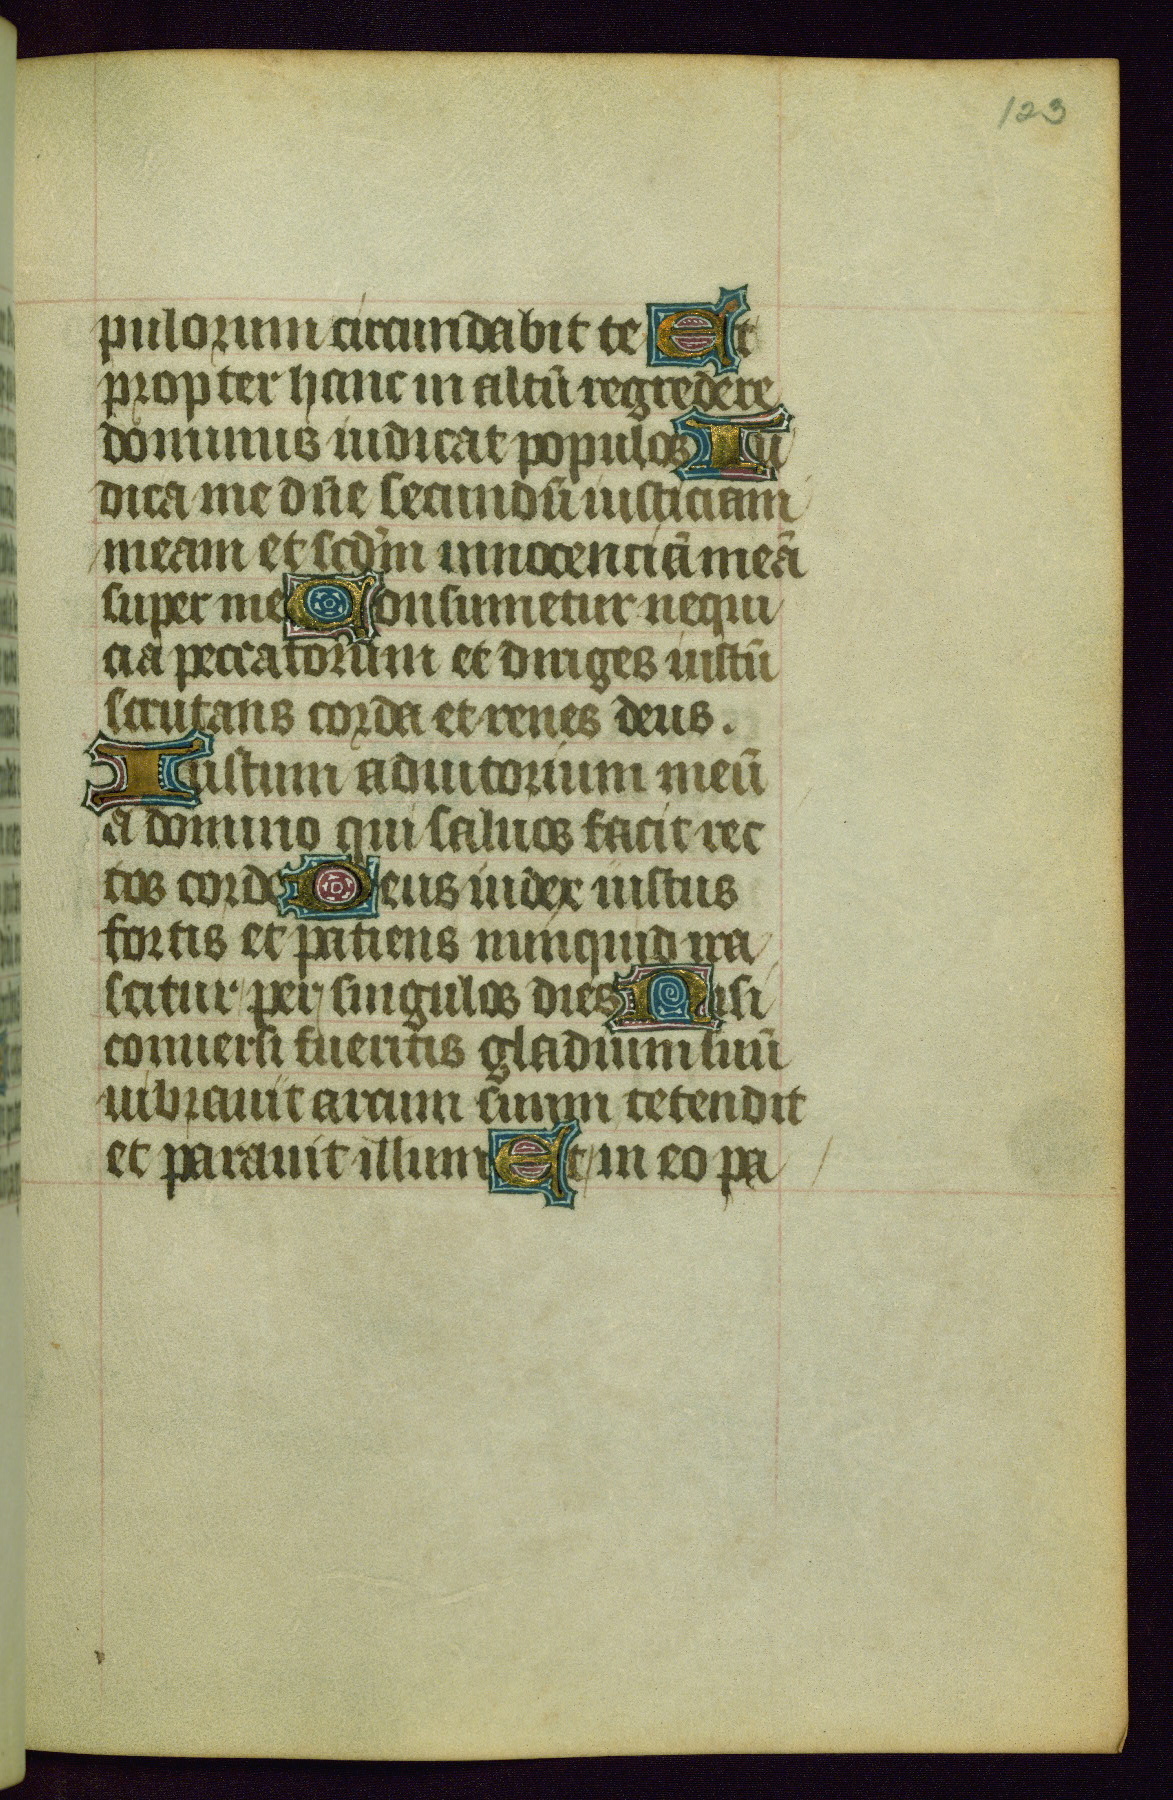 123
pulorum circumdabit te Et
propter hanc in altū regredere
dominus iudicat populos Iu
dica me dn̄e secundū iusticiam
meam et scd̄m innocenciā meā
super me Consumetur nequi
cia peccatorum et diriges iustū
scrutans corda et renes deus.
Iustum adiutorium meū
a domino qui saluos facit rec
tos corde Deus iudex iustus
fortis et patiens nunquid ira
scitur per singulos dies Nisi
conuersi fueritis gladium suū
uibrauit arcum suum tetendit
et parauit illum Et in eo pa